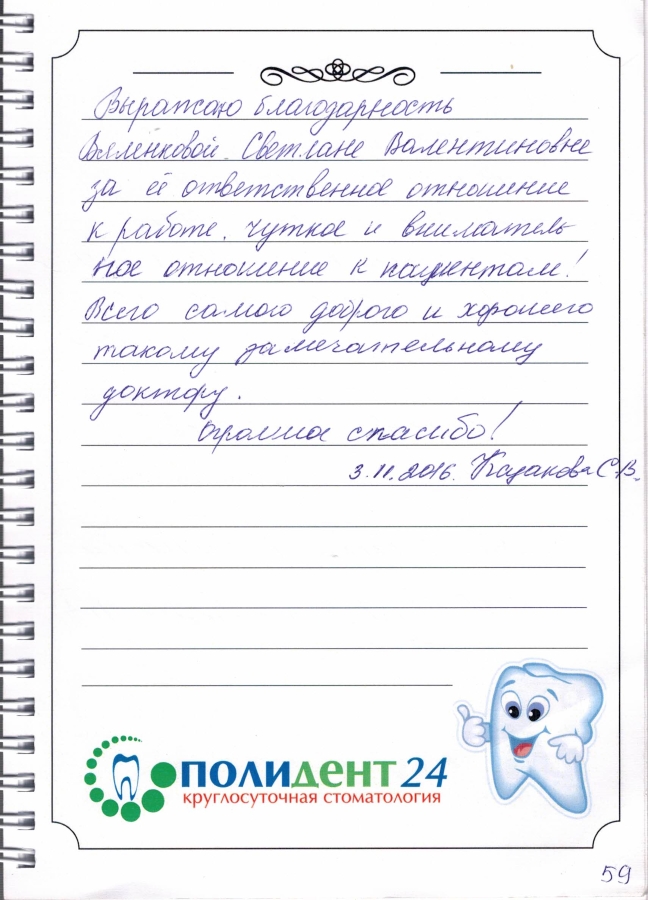 Выражаю благодарность
Вяленковой Светлане Валентиновне
за её ответственное отношение
к работе. Чуткое и вниматель
ное отношение к пациентам!
Всего самого доброго и хорошего
такому замечательному
доктору.
Огромное спасибо!
3.11.2016. Казакова С.В.
ПОЛИДЕНТ 24
круглосуточная стоматология
59